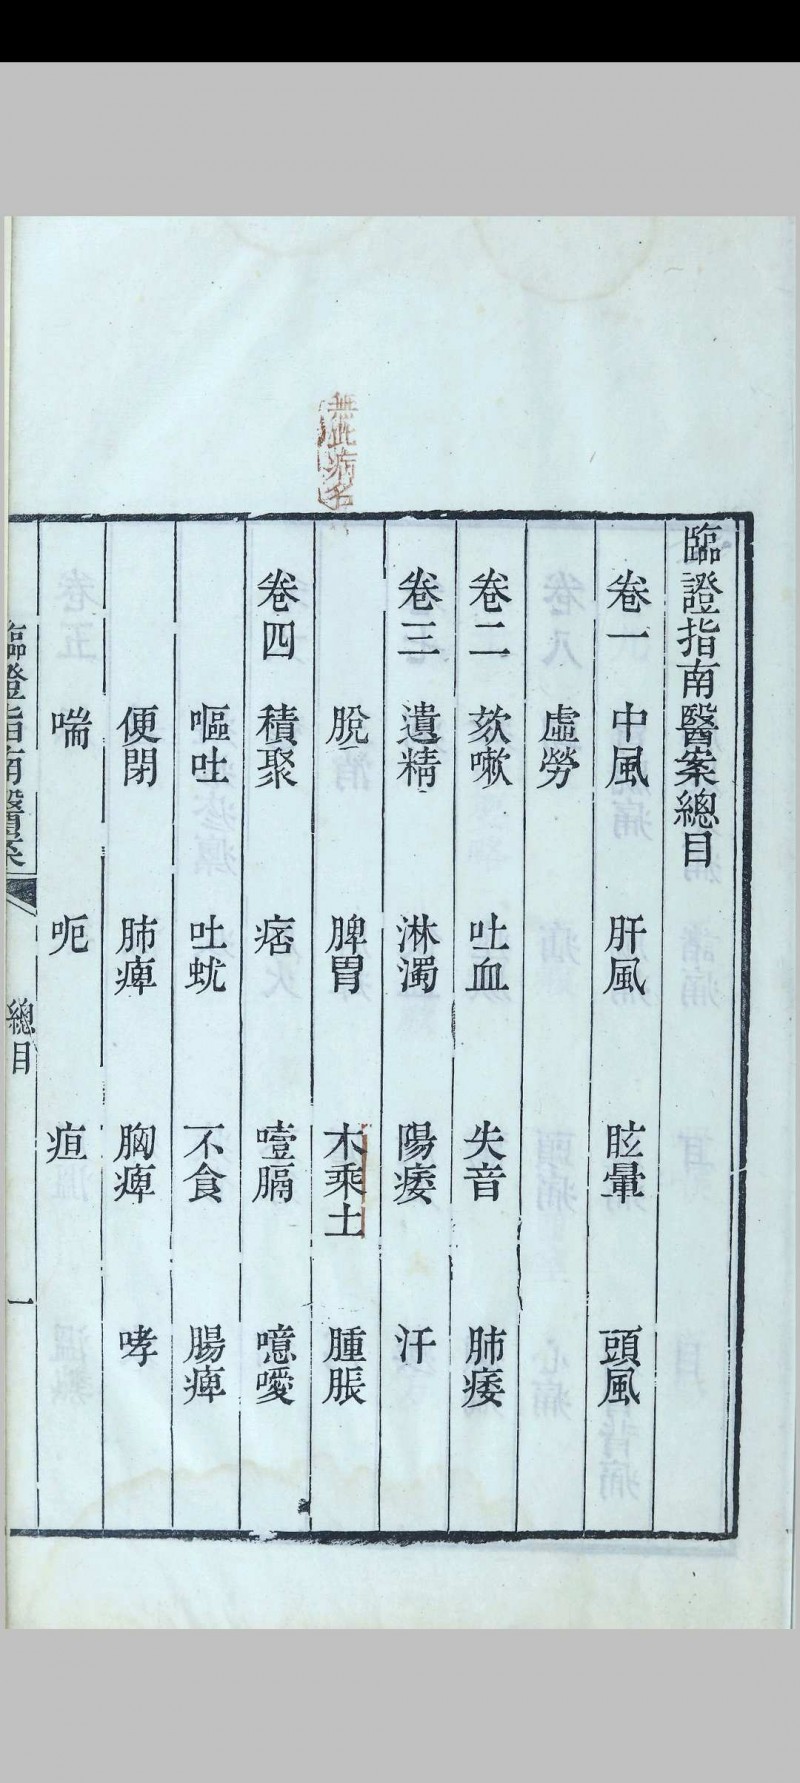 臨證指南醫案總目
卷一 中風 肝風 眩暈 頭風
虛勞
卷二 欬嗽 吐血 失音 肺痿
卷三 遺精 淋濁 陽痿 汗
脫 脾胃 木乘土 腫脹
卷四 積聚 痞 噎膈 噫噯
嘔吐 吐蚘 不食 腸痺
便閉 肺痺 胸痺 哮
喘 呃 疸
臨證指南醫案 總目 一
無此病名